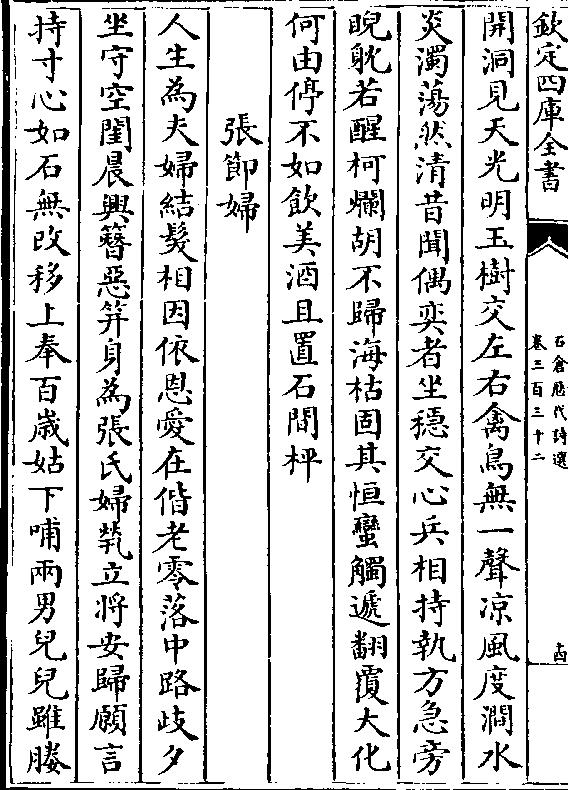 欽定四庫全書
石倉歷代詩選
卷三百三十二
十四
開洞見天光明玉樹交左右禽鳥無一聲凉風度澗水
炎濁蕩然清昔聞偶奕者坐穩交心兵相持執方急旁
睨躭若醒柯爛胡不歸海枯固其恒蠻觸遞翻覆大化
何由停不如飲美酒且置石間枰
張節婦
人生為夫婦結髮相因依恩愛在偕老零落中路歧夕
坐守空閨晨興簪惡笄身為張氏婦煢立將安歸願言
持寸心如石無改移上奉百歲姑下哺兩男兒兒雖